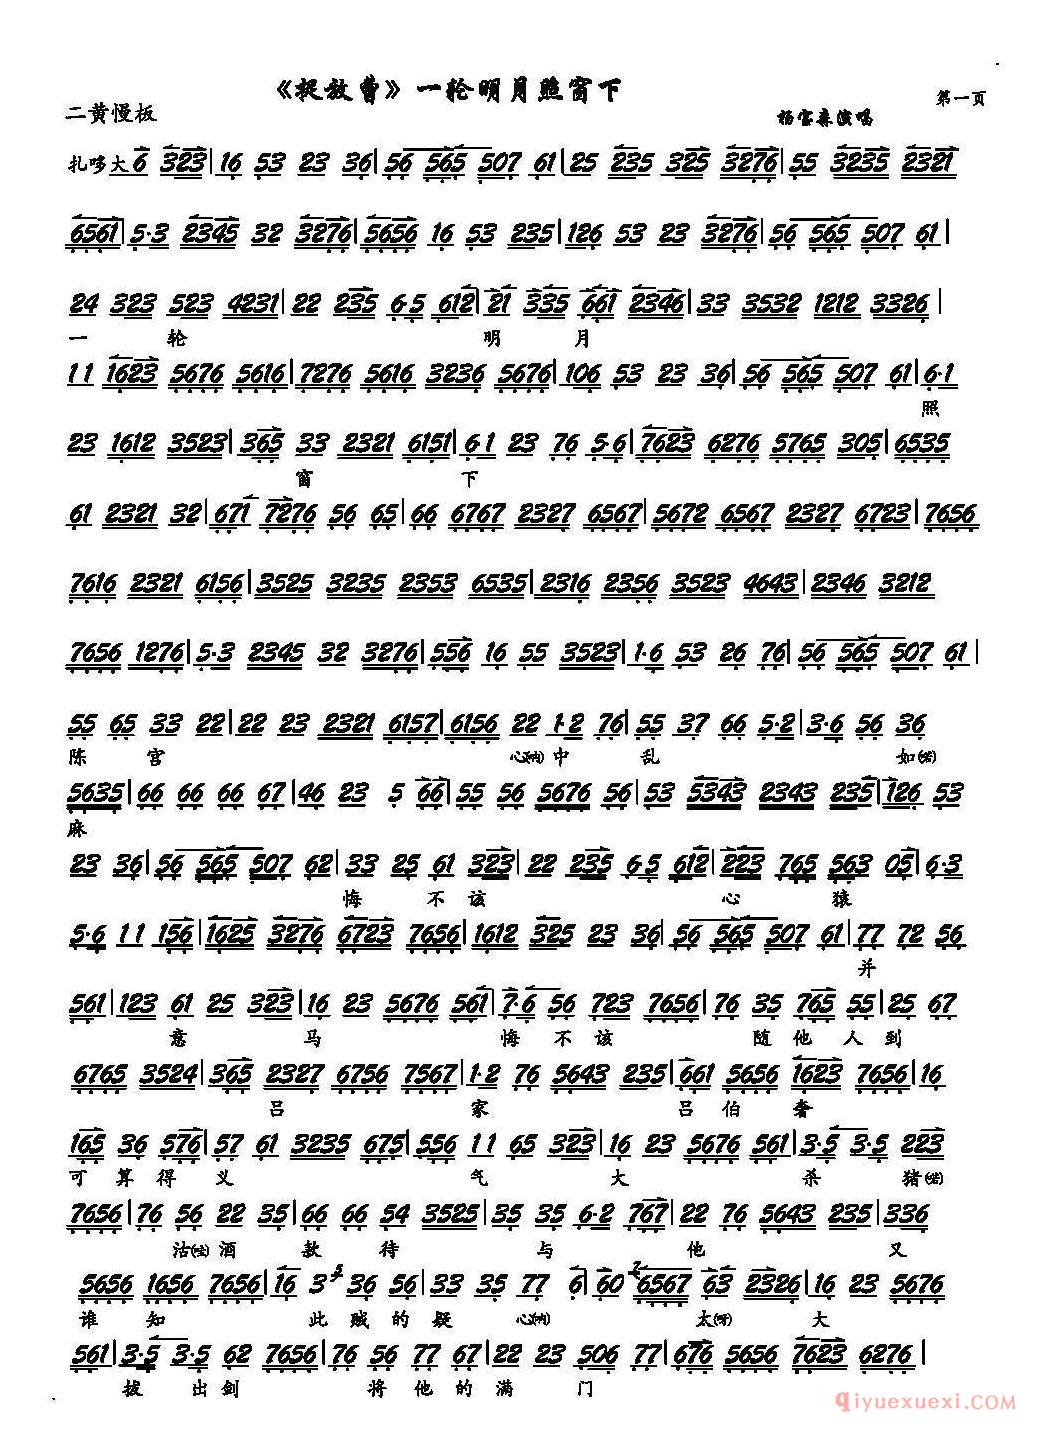 《捉放曹》一轮明月照窗下
二黄慢板
杨宝森演唱
第一页
扎哆大 6 323 | 16 53 23 36 | 56 565 507 61 | 25 235 325 3276 | 55 3235 2321
6561 | 5·3 2345 32 3276 | 5656 16 53 235 | 126 53 23 3276 | 56 565 507 61 |
24 323 523 4231 | 22 235 6·5 612 | 21 335 661 2346 | 33 3532 1212 3326 |
一 轮 明 月
11 1623 5676 5616 | 7276 5616 3236 5676 | 106 53 23 36 | 56 565 507 61 | 6·1
照
23 1612 3523 | 365 33 2321 6151 | 6·1 23 76 5·6 | 7623 6276 5765 305 | 6535
窗 下
61 2321 32 | 671 7276 56 65 | 66 6767 2327 6567 | 5672 6567 2327 6723 | 7656
7616 2321 6156 | 3525 3235 2353 6535 | 2316 2356 3523 4643 | 2346 3212
7656 1276 | 5·3 2345 32 3276 | 556 16 55 3523 | 1·6 53 26 76 | 56 565 507 61 |
55 65 33 22 | 22 23 2321 6157 | 6156 22 1·2 76 | 55 37 66 5·2 | 3·6 56 36
陈 宫 心(呐) 中 乱 如(偌)
5635 | 66 66 66 67 | 46 23 5 66 | 55 56 5676 56 | 53 5343 2343 235 | 126 53
麻
23 36 | 56 565 507 62 | 33 25 61 323 | 22 235 6·5 612 | 223 765 563 05 | 6·3
悔 不 该 心 猿
5·6 11 156 | 1625 3276 6723 7656 | 1612 325 23 36 | 56 565 507 61 | 77 72 56
并
561 | 123 61 25 323 | 16 23 5676 561 | 7·6 56 723 7656 | 76 35 765 55 | 25 67
意 马 悔 不 该 随 他 人 到
6765 3524 | 365 2327 6756 7567 | 1·2 76 5643 235 | 661 5656 1623 7656 | 16
吕 家 吕 伯 奢
165 36 576 | 57 61 3235 675 | 556 11 65 323 | 16 23 5676 561 | 3·5 3·5 223
可 算 得 义 气 大 杀 猪(偌)
7656 | 76 56 22 35 | 66 66 54 3525 | 35 35 6·2 767 | 22 76 5643 235 | 336
沽 酒 款 待 与 他 又
5656 1656 7656 | 16 3 5 36 56 | 33 35 77 6 | 60 2 6567 63 2326 | 16 23 5676
谁 知 此 贼 的 疑 心(呐) 太(呀) 大
561 | 3·5 3·5 62 7656 | 76 56 77 67 | 22 23 506 77 | 676 5656 7623 6276 |
拔 出 剑 将 他 的 满 门
qiyuexuexi.COM